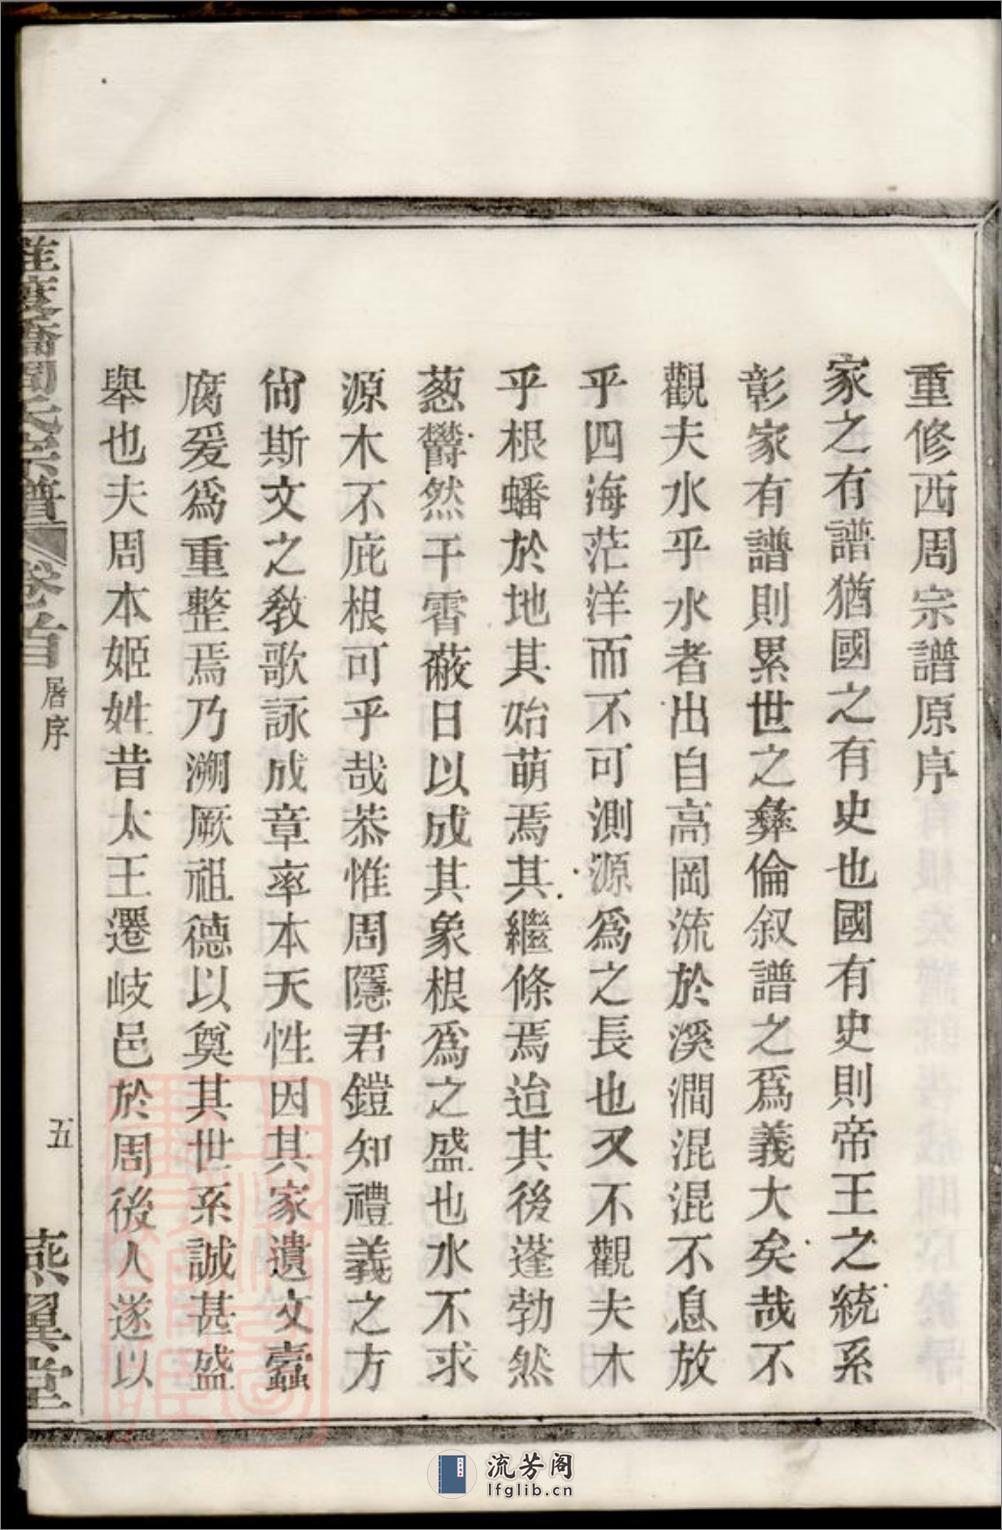 重修西周宗譜原序
家之有譜猶國之有史也國有史則帝王之統系
彰家有譜則累世之彝倫叙譜之爲義大矣哉不
觀夫水乎水者出自高岡流於溪澗混混不息放
乎四海茫洋而不可測源爲之長也又不觀夫木
乎根蟠於地其始萌焉其繼條焉迨其後蓬勃然
葱欝然干霄蔽日以成其象根爲之盛也水不求
源木不庇根可乎哉恭惟周隱君鎧知禮義之方
尙斯文之敎歌詠成章率本天性因其家遺文蠧
腐爰爲重整焉乃溯厥祖德以奠其世系誠甚盛
舉也夫周本姬姓昔太王遷岐邑於周後人遂以
周氏宗譜
卷首
序
五
燕翼堂
流芳阁
lfglib.cn